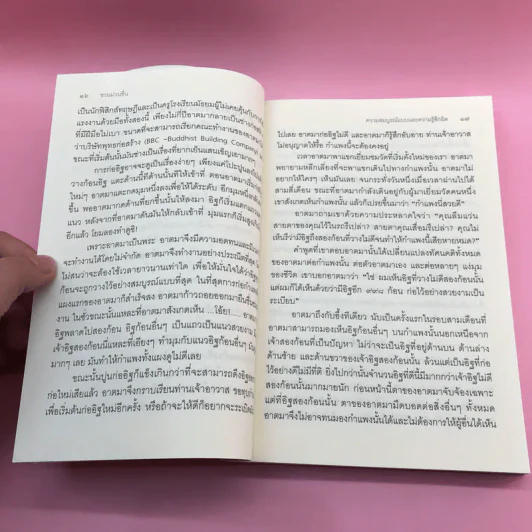 ๑๖ ชวนม่วนชื่น
เป็นนักฟิสิกส์ทฤษฎีและเป็นครูโรงเรียนมัธยมผู้ไม่เคยคุ้นกับการใช้
แรงงานด้วยมือทั้งสองนี้ เพียงไม่กี่ปีอาตมากลายเป็นช่างก่อสร้าง
ที่มีฝีมือไม่เบา ขนาดที่จะสามารถเรียกคณะทำงานของอาตมา
ว่าบริษัทพุทธก่อสร้าง (BBC -Buddhist Building Company)
ขณะที่เริ่มต้นนั้นมันช่างเป็นเรื่องที่ยากเย็นแสนเข็ญเอามากๆ
การก่ออิฐอาจจะดูเป็นเรื่องง่ายๆ เพียงแค่โปะปูน
วางก้อนอิฐ แตะด้านนี้ทีด้านนั้นทีให้เข้าที่ ตอนอาตมา
ใหม่ๆ อาตมาแตะกดมุมหนึ่งลงเพื่อให้ได้ระดับ อีกมุมหนึ่ง
ขึ้น พออาตมากดด้านที่ยกขึ้นนั้นให้ลงมา อิฐก็เริ่ม
แนว หลังจากที่อาตมาดันมันให้กลับเข้าที่ มุมแรกก็เริ่มสูง
อีกแล้ว โยมลองทำดูซิ!
เพราะอาตมาเป็นพระ อาตมาจึงมีความอดทนและ
จะทำงานได้โดยไม่จำกัด อาตมาจึงทำงานอย่างประณีตที่สุด
ไม่สนว่าจะต้องใช้เวลายาวนานเท่าใด เพื่อให้มั่นใจได้ว่าอิฐ
ก้อนจะถูกวางไว้อย่างสมบูรณ์แบบที่สุด ในที่สุดการก่อกำแพง
แผงแรกของอาตมาก็สำเร็จลง อาตมาก้าวถอยออกมายืนชื่นชม
งาน ในชั่วขณะนั้นแหละที่อาตมาสังเกตเห็น ...โอ้ย... อาตมาก่อ
อิฐพลาดไปสองก้อน อิฐก้อนอื่นๆ เป็นแถวเป็นแนวสวยงาม
เจ้าอิฐสองก้อนนี้แหละที่เอียงๆ ทำมุมกับแนวอิฐก้อนอื่นๆ มัน
มากๆ เลย มันทำให้กำแพงทั้งแผงดูไม่ดีเลย
ขณะนั้นปูนก่ออิฐก็แข็งเกินกว่าที่จะสามารถดึงอิฐออก
ก่อใหม่เสียแล้ว อาตมาจึงกราบเรียนท่านเจ้าอาวาส ขอทุบกำแพง
เพื่อเริ่มต้นก่ออิฐใหม่อีกครั้ง หรือถ้าจะให้ดีก็อยากจะระเบิด
ความสมบูรณ์แบบและความรู้สึกผิด ๑๗
ไปเลย อาตมาก่ออิฐไม่ดี และอาตมาก็รู้สึกอับอาย ท่านเจ้าอาวาส
ไม่อนุญาตให้รื้อ กำแพงนี้จะต้องคงอยู่
เวลาอาตมาพาแขกเยี่ยมชมวัดที่เริ่มตั้งใหม่ของเรา อาตมา
พยายามหลีกเลี่ยงที่จะพาแขกเดินไปทางกำแพงนั้น อาตมาไม่
อยากให้ใครๆ เห็นมันเลย จนกระทั่งวันหนึ่งเมื่องานสร้างผ่านไปได้
สามสี่เดือน ขณะที่อาตมากำลังเดินอยู่กับผู้มาเยี่ยมวัดคนหนึ่ง
เขาสังเกตเห็นกำแพงนั้น แล้วก็เปรยขึ้นมาว่า "กำแพงนี่สวยดี"
อาตมาถามเขาด้วยความประหลาดใจว่า "คุณลืมแว่น
สายตาของคุณไว้ในรถรึเปล่า? สายตาคุณเสื่อมรึเปล่า? คุณไม่
เห็นรึว่ามีอิฐถึงสองก้อนที่วางไม่ดีจนทำให้กำแพงนี้เสียหายหมด?"
คำพูดที่เขาตอบอาตมานั้นได้เปลี่ยนแปลงทัศนคติทั้งหมด
ของอาตมาต่อกำแพงนั้น ต่อตัวอาตมาเอง และต่อหลายๆ แง่มุม
ของชีวิต เขาบอกอาตมาว่า "ใช่ ผมเห็นอิฐที่วางไม่ดีสองก้อนนั้น
แต่ผมก็ได้เห็นด้วยว่ามีอิฐอีก ๙๙๘ ก้อน ก่อไว้อย่างสวยงามเป็น
ระเบียบ"
อาตมาถึงกับอึ้งทีเดียว นับเป็นครั้งแรกในรอบสามเดือนที่
อาตมาสามารถมองเห็นอิฐก้อนอื่นๆ บนกำแพงนั้นนอกเหนือจาก
เจ้าสองก้อนที่เป็นปัญหา ไม่ว่าจะเป็นอิฐที่อยู่ด้านบน ด้านล่าง
ด้านซ้าย และด้านขวาของเจ้าอิฐสองก้อนนั้น ล้วนแต่เป็นอิฐที่ก่อ
ไว้อย่างดีไม่มีที่ติ ยิ่งไปกว่านั้นจำนวนอิฐที่ดีนี้มีมากกว่าเจ้าอิฐไม่ดี
สองก้อนนั้นมากมายนัก ก่อนหน้านี้ตาของอาตมาจับจ้องเฉพาะ
แต่ที่อิฐสองก้อนนั้น ตาของอาตมามืดบอดต่อสิ่งอื่นๆ ทั้งหมด
อาตมาจึงไม่อาจทนมองกำแพงนั้นได้และไม่ต้องการให้ผู้อื่นได้เห็น